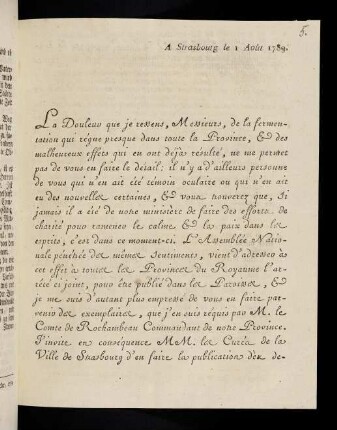 5.
A Strasbourg le 1 Août 1789.
La Douleur que je ressens, Messieurs, de la fermen-
tation qui règne presque dans toute la Province, & des
malheureux effets qui en ont déjà résulté, ne me permet
pas de vous en faire le détail; il n'y a d'ailleurs personne
de vous qui n'en ait été témoin oculaire ou qui n'en ait
eu des nouvelles certaines, & vous trouverez que, Si
jamais il a été de notre ministère de faire des efforts de
charité pour ramener le calme & la paix dans les
esprits, c'est dans ce moment-ci. L'Assemblée Natio-
nale pénétrée des mêmes Sentiments, vient d'adresser à
cet effet à toutes les Provinces du Royaume l'ar-
rêté ci joint, pour être publié dans les Paroisses, &
je me suis d'autant plus empressé de vous en faire par-
venir des exemplaires, que j'en suis requis par M. le
Comte de Rochambeau Commandant de notre Province.
J'invite en conséquence MM. les Curés de la
Ville de Strasbourg d'en faire la publication dès de-